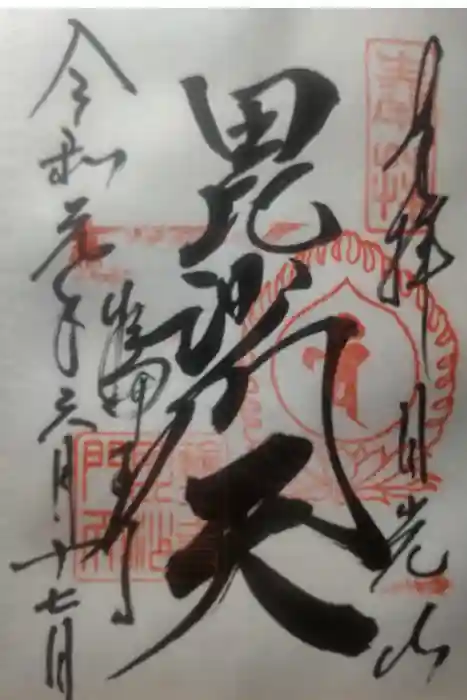 奉拝 日光山
毘沙門天
輪王寺
令和元年六月十七日